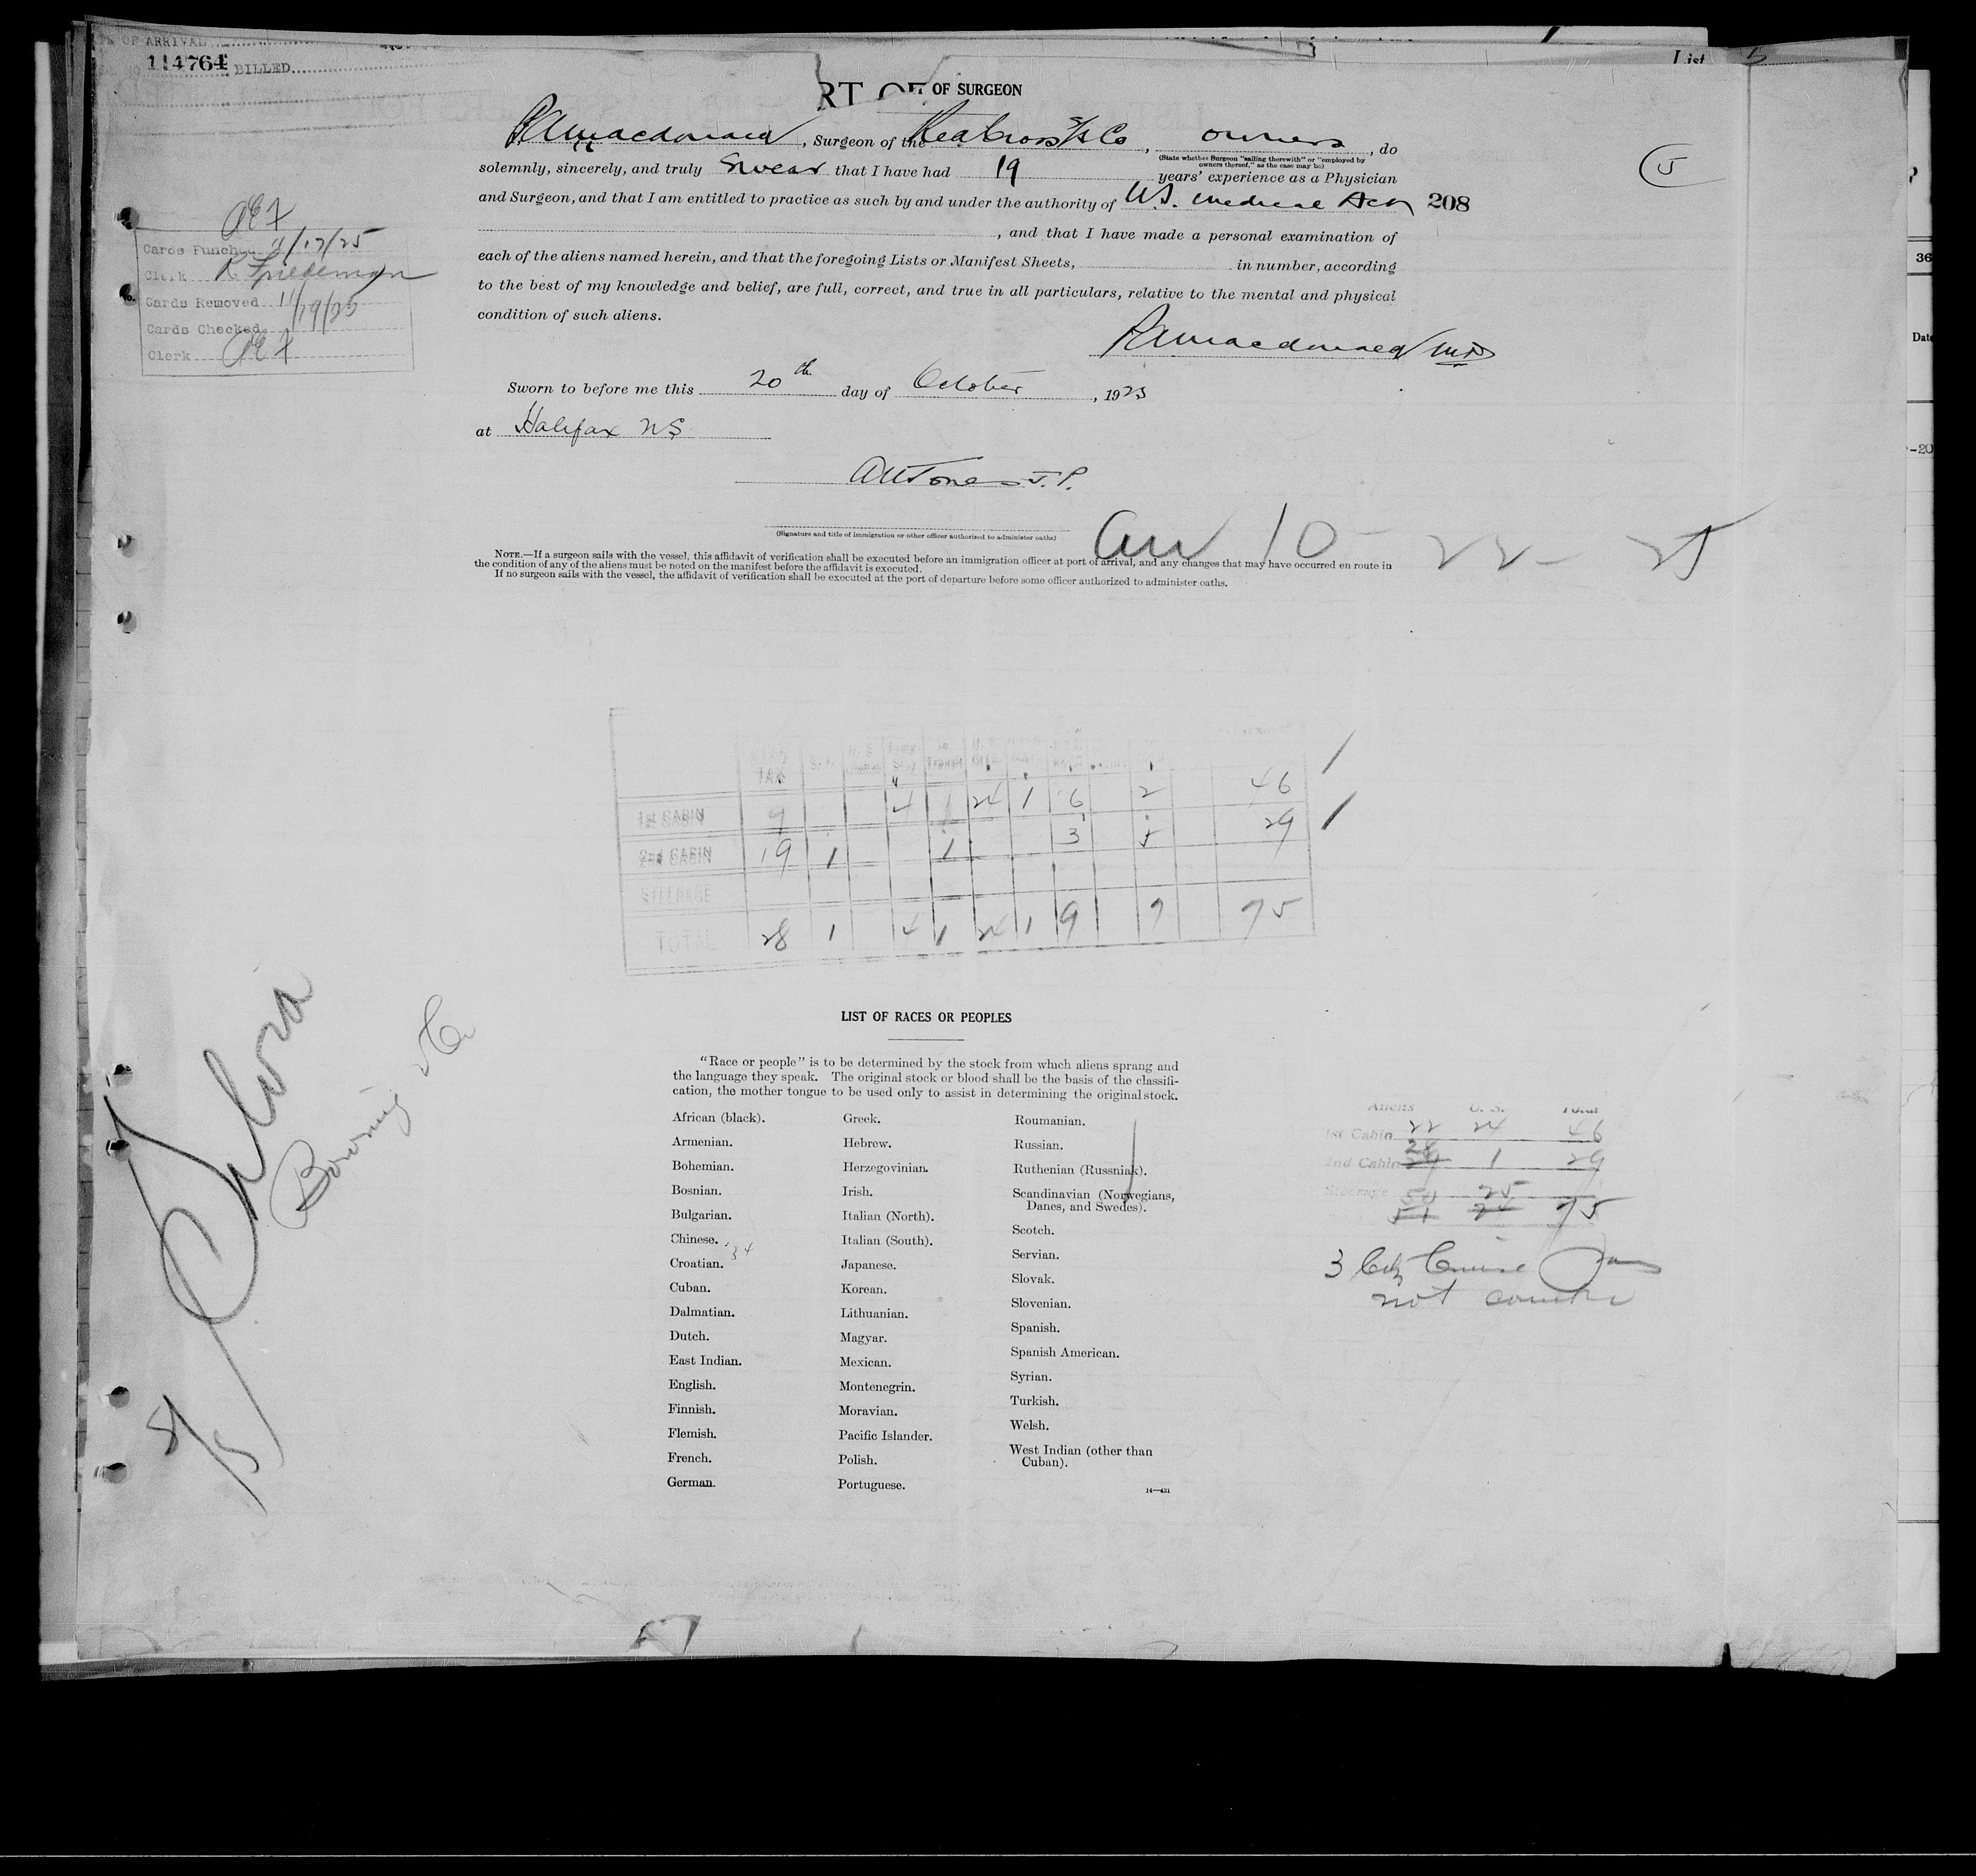 OF ARRIVAL
114764 BILLED
List 5
RT OF OF SURGEON
RAMacdonald, Surgeon of the Red Cross S/S Co, owners, do
(State whether Surgeon "sailing therewith" or "employed by owners thereof," as the case may be)
solemnly, sincerely, and truly Swear that I have had 19 years' experience as a Physician
5
and Surgeon, and that I am entitled to practice as such by and under the authority of N.S. Medical Act 208
, and that I have made a personal examination of
each of the aliens named herein, and that the foregoing Lists or Manifest Sheets, in number, according
to the best of my knowledge and belief, are full, correct, and true in all particulars, relative to the mental and physical
condition of such aliens.
RAMacdonald MD
Cards Punched 11/17/25
Clerk Friedeman
Cards Removed 11/19/25
Cards Checked
Clerk
Sworn to before me this 20th day of October, 1925
at Halifax NS
J.P.
(Signature and title of immigration or other officer authorized to administer oaths)
10-22-25
NOTE.—If a surgeon sails with the vessel, this affidavit of verification shall be executed before an immigration officer at port of arrival, and any changes that may have occurred en route in
the condition of any of the aliens must be noted on the manifest before the affidavit is executed.
If no surgeon sails with the vessel, the affidavit of verification shall be executed at the port of departure before some officer authorized to administer oaths.
1st CABIN 9 4 1 24 1 6 2 46
2nd CABIN 19 1 1 3 5 29
STEERAGE
TOTAL 28 1 4 1 24 1 9 7 75
Silvia
Bowring & Co
LIST OF RACES OR PEOPLES
"Race or people" is to be determined by the stock from which aliens sprang and
the language they speak. The original stock or blood shall be the basis of the classifi-
cation, the mother tongue to be used only to assist in determining the original stock.
African (black).
Armenian.
Bohemian.
Bosnian.
Bulgarian.
Chinese.
Croatian.
Cuban.
Dalmatian.
Dutch.
East Indian.
English.
Finnish.
Flemish.
French.
German.
Greek.
Hebrew.
Herzegovinian.
Irish.
Italian (North).
Italian (South).
Japanese.
Korean.
Lithuanian.
Magyar.
Mexican.
Montenegrin.
Moravian.
Pacific Islander.
Polish.
Portuguese.
Roumanian.
Russian.
Ruthenian (Russniak).
Scandinavian (Norwegians,
Danes, and Swedes).
Scotch.
Servian.
Slovak.
Slovenian.
Spanish.
Spanish American.
Syrian.
Turkish.
Welsh.
West Indian (other than
Cuban).
14—431
Aliens U. S. Total
1st Cabin 22 24 46
2nd Cabin 28 1 29
Steerage
50 25 75
3 Cruise
not